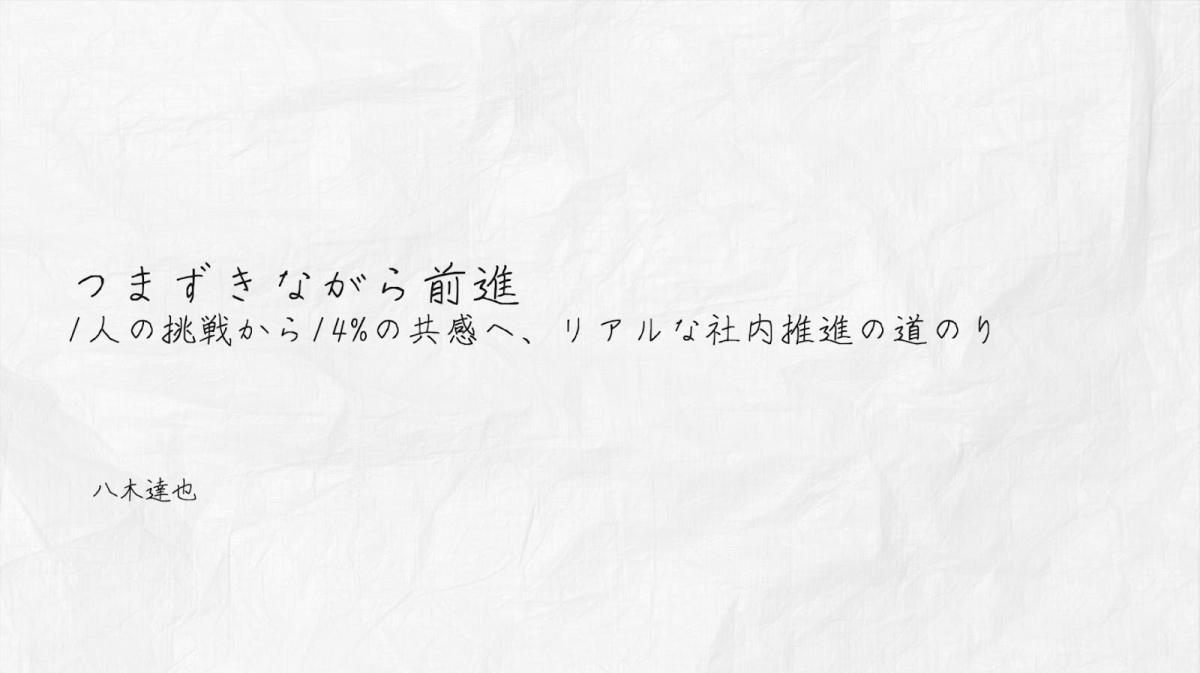 つまずきながら前進
1人の挑戦から14%の共感へ、リアルな社内推進の道のり
八木達也